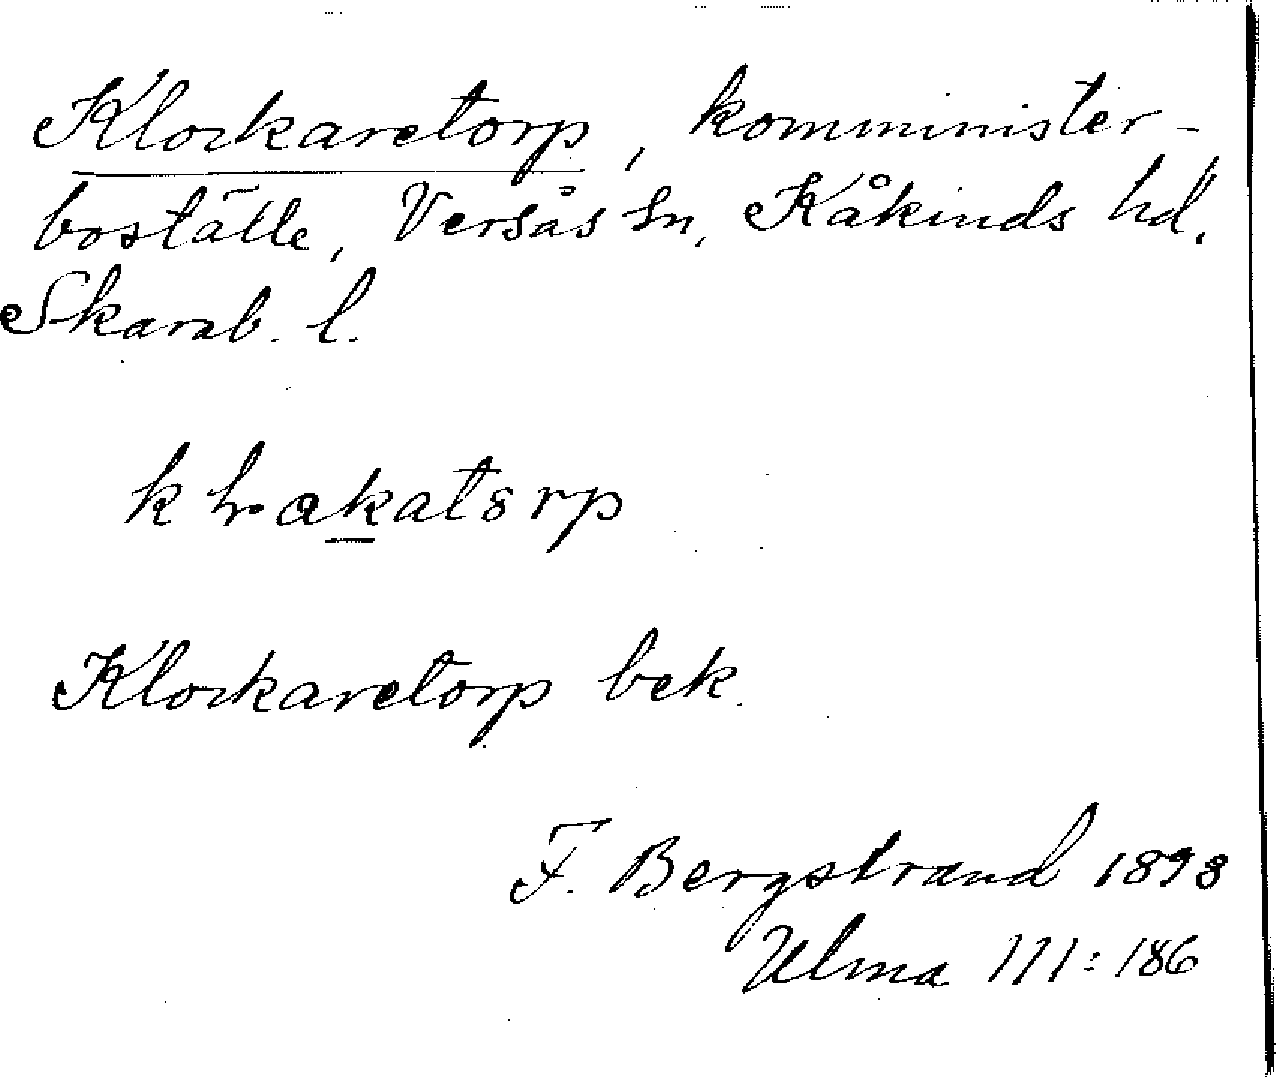 Klockaretorp, komminister-
boställe, Versås sn, Kåkinds hd,
Skarab. l.
Klockaretorp bek.
F. Bergstrand 1893
Ulma 111:186